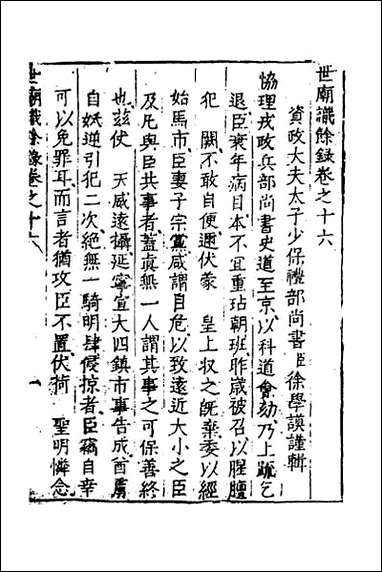 世廟識餘錄卷之十六
資政大夫太子少保禮部尚書臣徐學謨謹輯
協理戎政兵部尚書史道至京以科道會劾乃上疏乞
退臣衰年病目本不宜重玷朝班昨歲被召以腥膻
犯 闕不敢自便遷伏蒙 皇上収之旣棄委以經
始馬市臣妻子宗黨咸謂自危以致遠近大小之臣
及凡與臣共事者蓋眞無一人謂其事之可保善終
也玆伏 天威遠攝延寧宣大四鎮市事告成酋虜
自妖逆引犯二次絕無一騎明肆侵掠者臣竊自幸
可以免罪耳而言者猶攻臣不置伏荷 聖明憐念
世廟識餘錄卷之十六
一